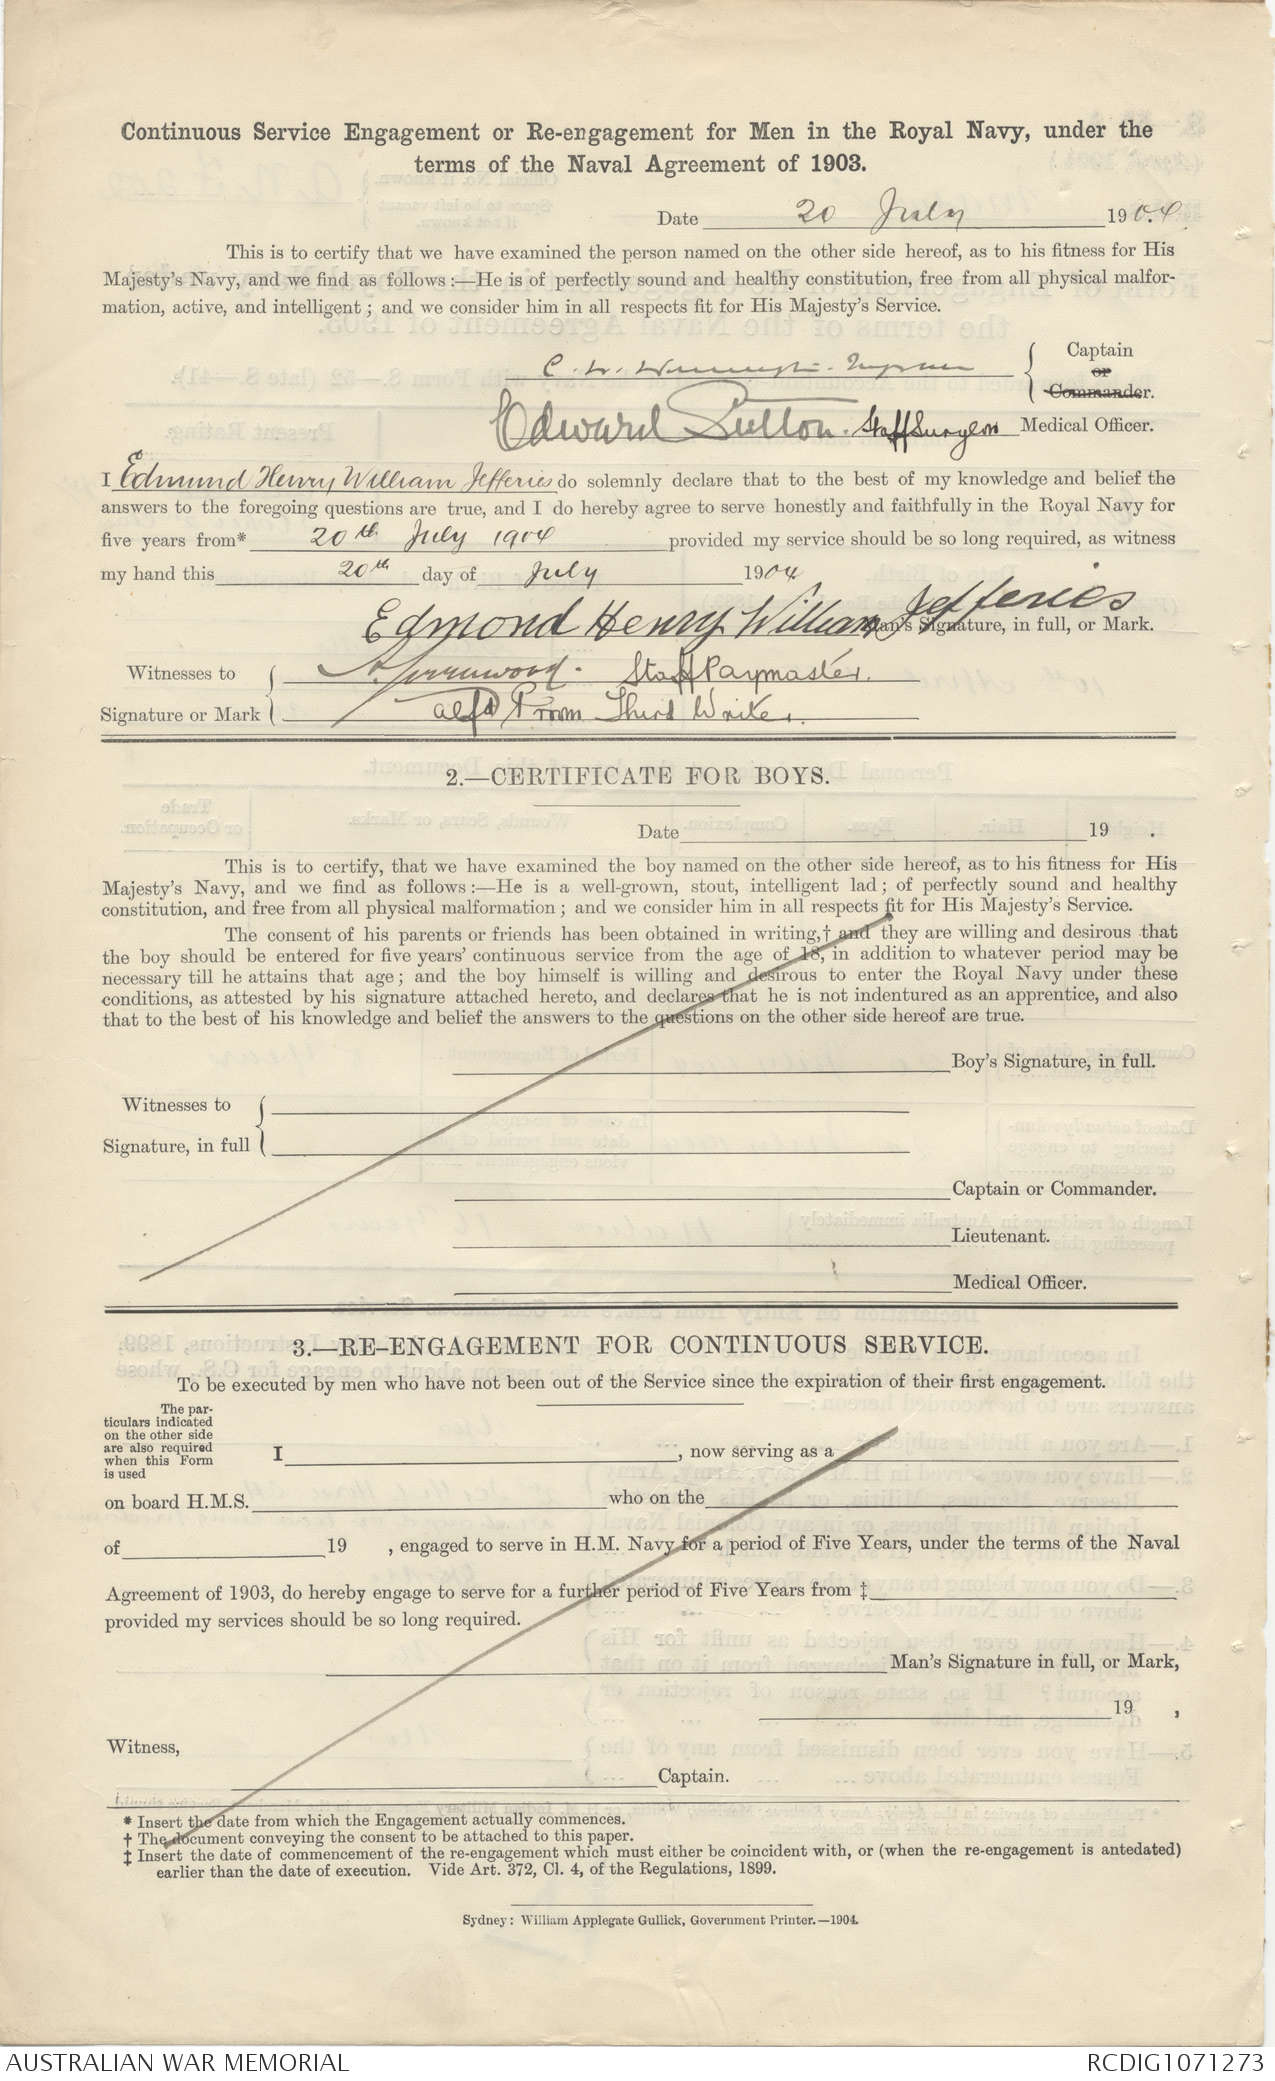 Continuous Service Engagement or Re-engagement for Men in the Royal Navy, under the
terms of the Naval Agreement of 1903.
Date 20 July 1904.
This is to certify that we have examined the person named on the other side hereof, as to his fitness for His
Majesty's Navy, and we find as follows :—He is of perfectly sound and healthy constitution, free from all physical malfor-
mation, active, and intelligent ; and we consider him in all respects fit for His Majesty's Service.
C. W. Captain
or
Commander.
Edward Sutton. Staff Surgeon Medical Officer.
I Edmund Henry William Jefferies do solemnly declare that to the best of my knowledge and belief the
answers to the foregoing questions are true, and I do hereby agree to serve honestly and faithfully in the Royal Navy for
five years from* 20th July 1904 provided my service should be so long required, as witness
my hand this 20th day of July 1904
Edmond Henry William Jefferies
Man's Signature, in full, or Mark.
Witnesses to Staff Paymaster.
Signature or Mark Third Writer.
2.—CERTIFICATE FOR BOYS.
Date 19 .
This is to certify, that we have examined the boy named on the other side hereof, as to his fitness for His
Majesty's Navy, and we find as follows :—He is a well-grown, stout, intelligent lad ; of perfectly sound and healthy
constitution, and free from all physical malformation ; and we consider him in all respects fit for His Majesty's Service.
The consent of his parents or friends has been obtained in writing,† and they are willing and desirous that
the boy should be entered for five years' continuous service from the age of 18, in addition to whatever period may be
necessary till he attains that age ; and the boy himself is willing and desirous to enter the Royal Navy under these
conditions, as attested by his signature attached hereto, and declares that he is not indentured as an apprentice, and also
that to the best of his knowledge and belief the answers to the questions on the other side hereof are true.
Boy's Signature, in full.
Witnesses to
Signature, in full
Captain or Commander.
Lieutenant.
Medical Officer.
3.—RE-ENGAGEMENT FOR CONTINUOUS SERVICE.
To be executed by men who have not been out of the Service since the expiration of their first engagement.
The par-
ticulars indicated
on the other side
are also required
when this Form
is used
I , now serving as a
on board H.M.S. who on the
of 19 , engaged to serve in H.M. Navy for a period of Five Years, under the terms of the Naval
Agreement of 1903, do hereby engage to serve for a further period of Five Years from ‡
provided my services should be so long required.
Man's Signature in full, or Mark,
19 ,
Witness,
Captain.
* Insert the date from which the Engagement actually commences.
† The document conveying the consent to be attached to this paper.
‡ Insert the date of commencement of the re-engagement which must either be coincident with, or (when the re-engagement is antedated)
earlier than the date of execution. Vide Art. 372, Cl. 4, of the Regulations, 1899.
Sydney : William Applegate Gullick, Government Printer.—1904.
AUSTRALIAN WAR MEMORIAL RCDIG1071273